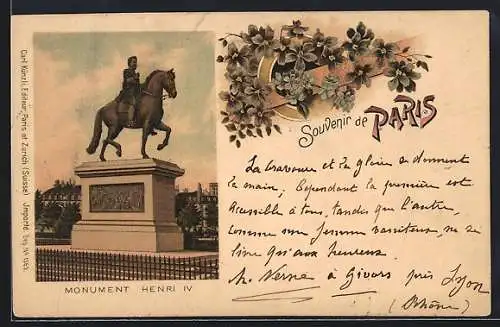 Carl Künzli, Editeur, Paris et Zurich (Suisse) Importé
MONUMENT HENRI IV
Souvenir de PARIS
La bravoure et la gloire se donnent
la main; Cependant la première est
accessible à tous, tandis que l'autre,
comme une femme vaniteuse, ne se
livre qu'aux heureux.
Verne à Givors près Lyon
(Rhône)